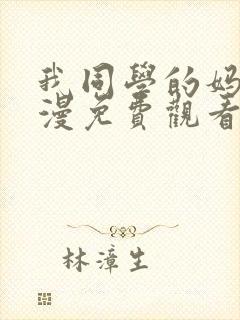 我同學的妈
漫免費觀看
林漳生